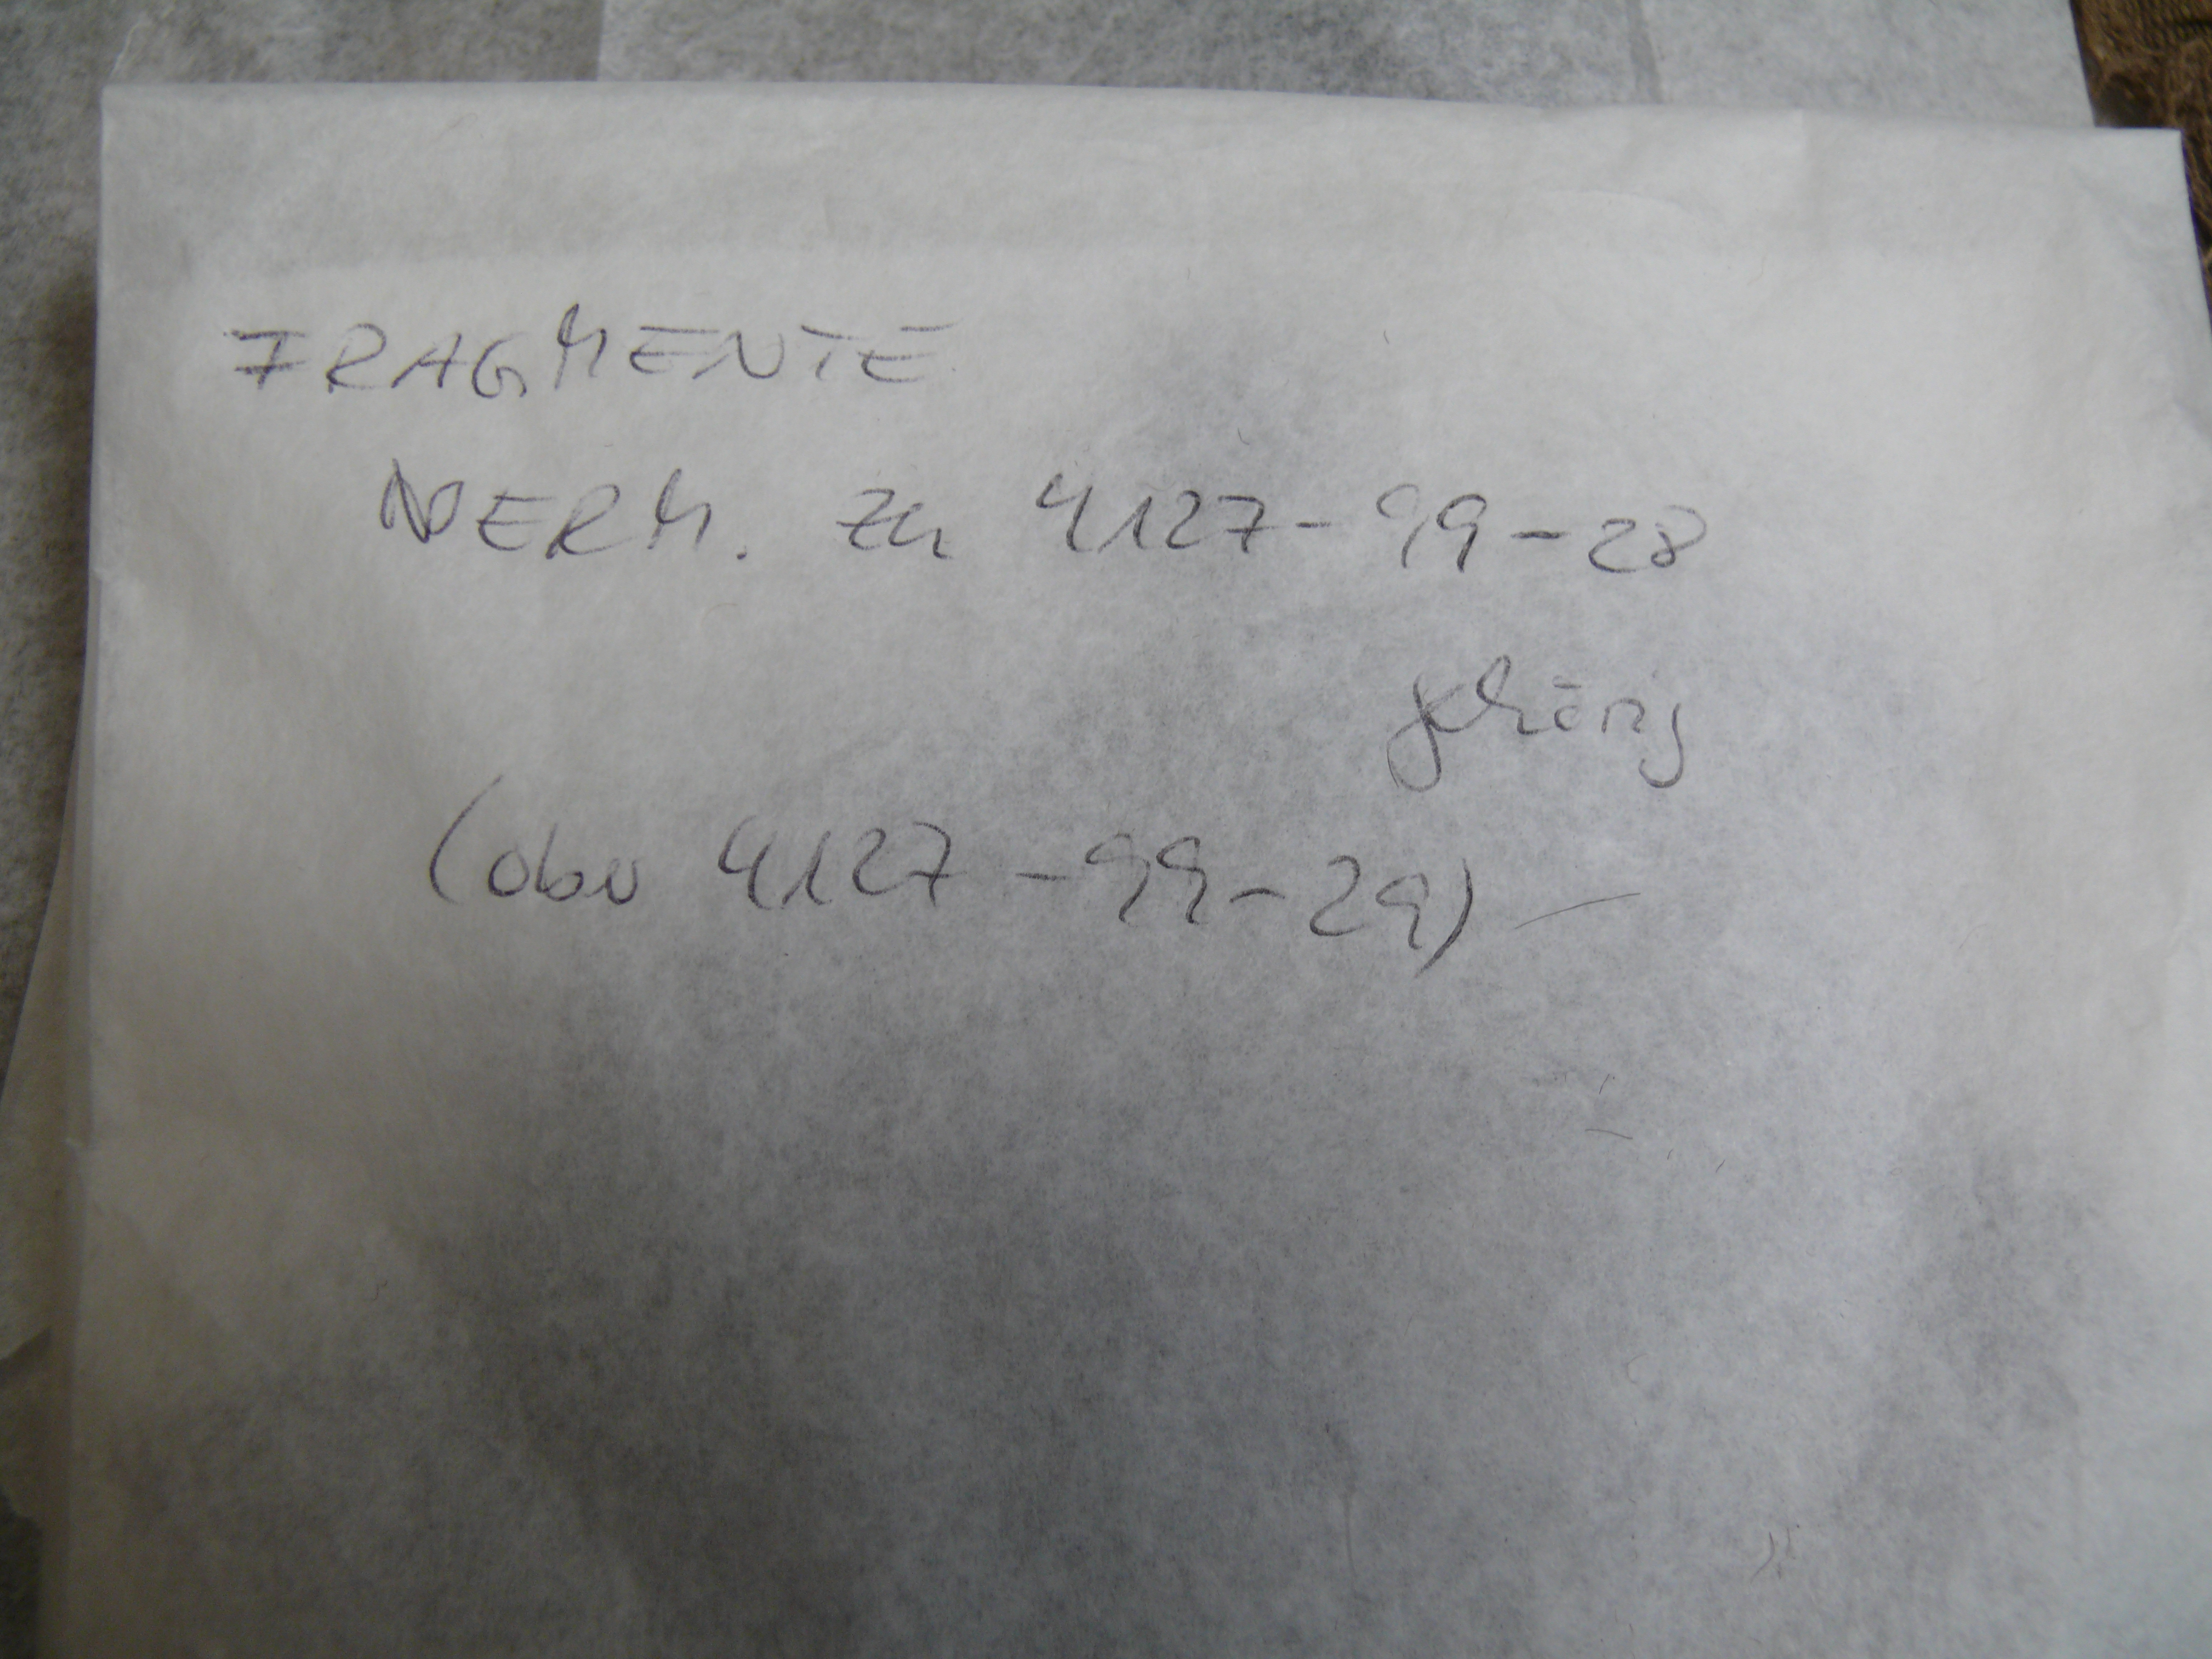 FRAGMENTE
VERM. zu 4127-99-28
gehörig
(oder 4127-99-29)